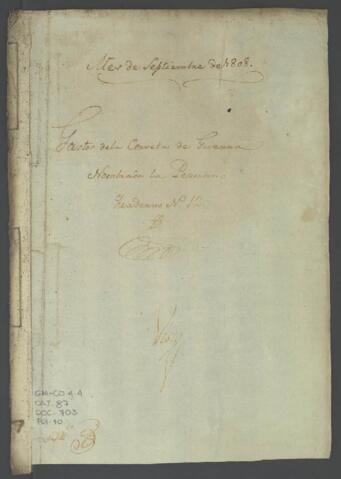 Mes de Septiembre de 1808.
Gastos dela Corveta de Guerra
Nombrada la Peruana
Quaderno Nº 12
GM-CO 4.4
CAJ. 87
DOC. 703
FOL. 10